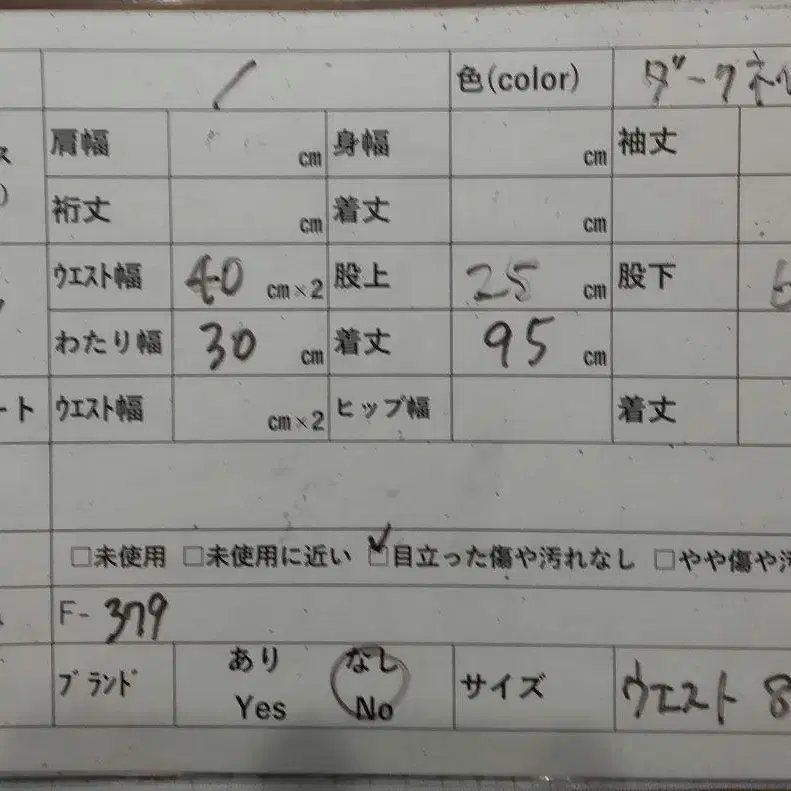 色(color) ダークネ
肩幅 cm 身幅 cm 袖丈
裄丈 cm 着丈 cm
ウエスト幅 40 cm×2 股上 25 cm 股下
わたり幅 30 cm 着丈 95 cm
ート ウエスト幅 cm×2 ヒップ幅 着丈
□未使用 □未使用に近い ☑目立った傷や汚れなし □やや傷や汚
F- 379
ブランド あり Yes なし No サイズ ウエスト 8